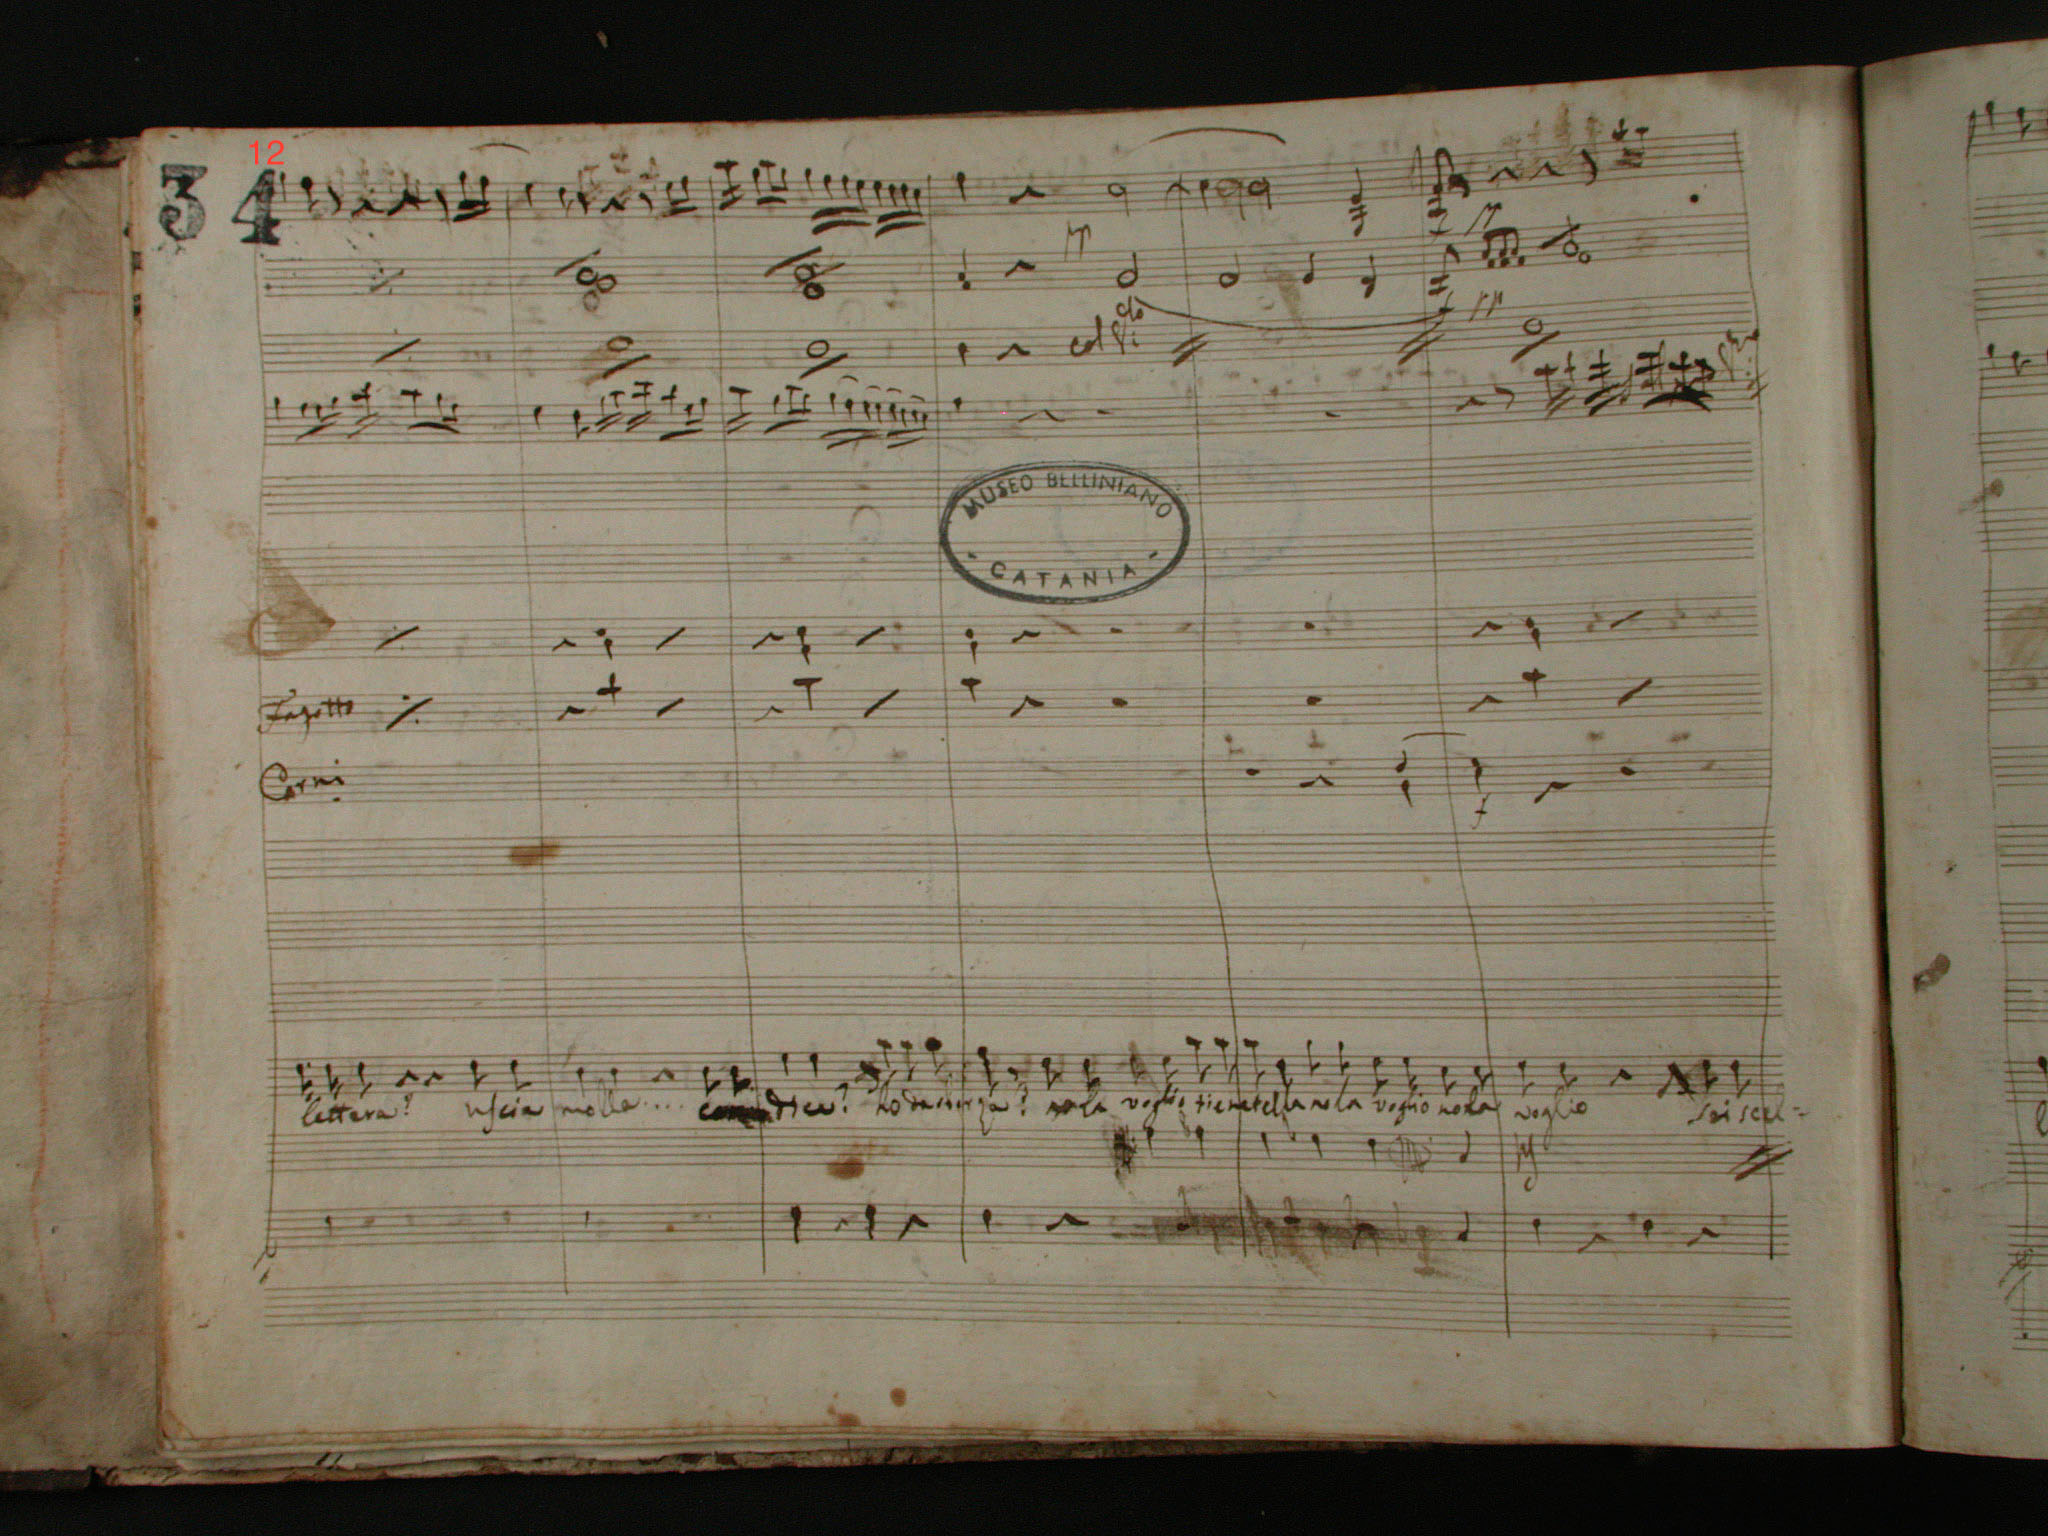 12
34
col Vi
MUSEO BELLINIANO
CATANIA
Fagotto
Corni
lettera? uscia molla... dica? no la voglio tienatella no la voglio no la voglio sei scel-